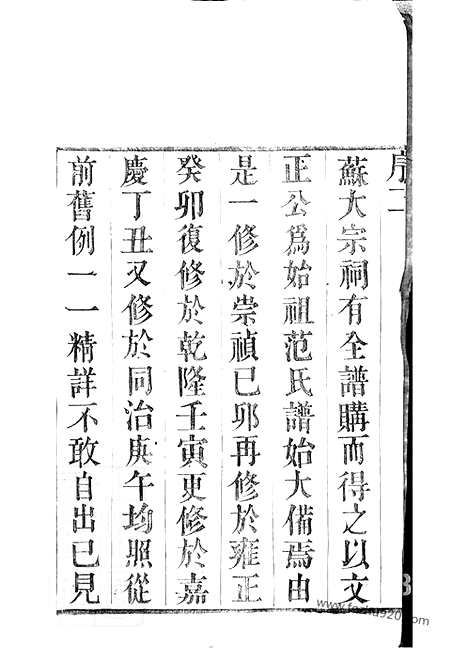 序二
蘇大宗祠有全譜購而得之以文
正公爲始祖范氏譜始大備焉由
是一修於崇禎己卯再修於雍正
癸卯復修於乾隆壬寅更修於嘉
慶丁丑又修於同治庚午均照從
前舊例一一精詳不敢自出已見
www.fozhu920.com